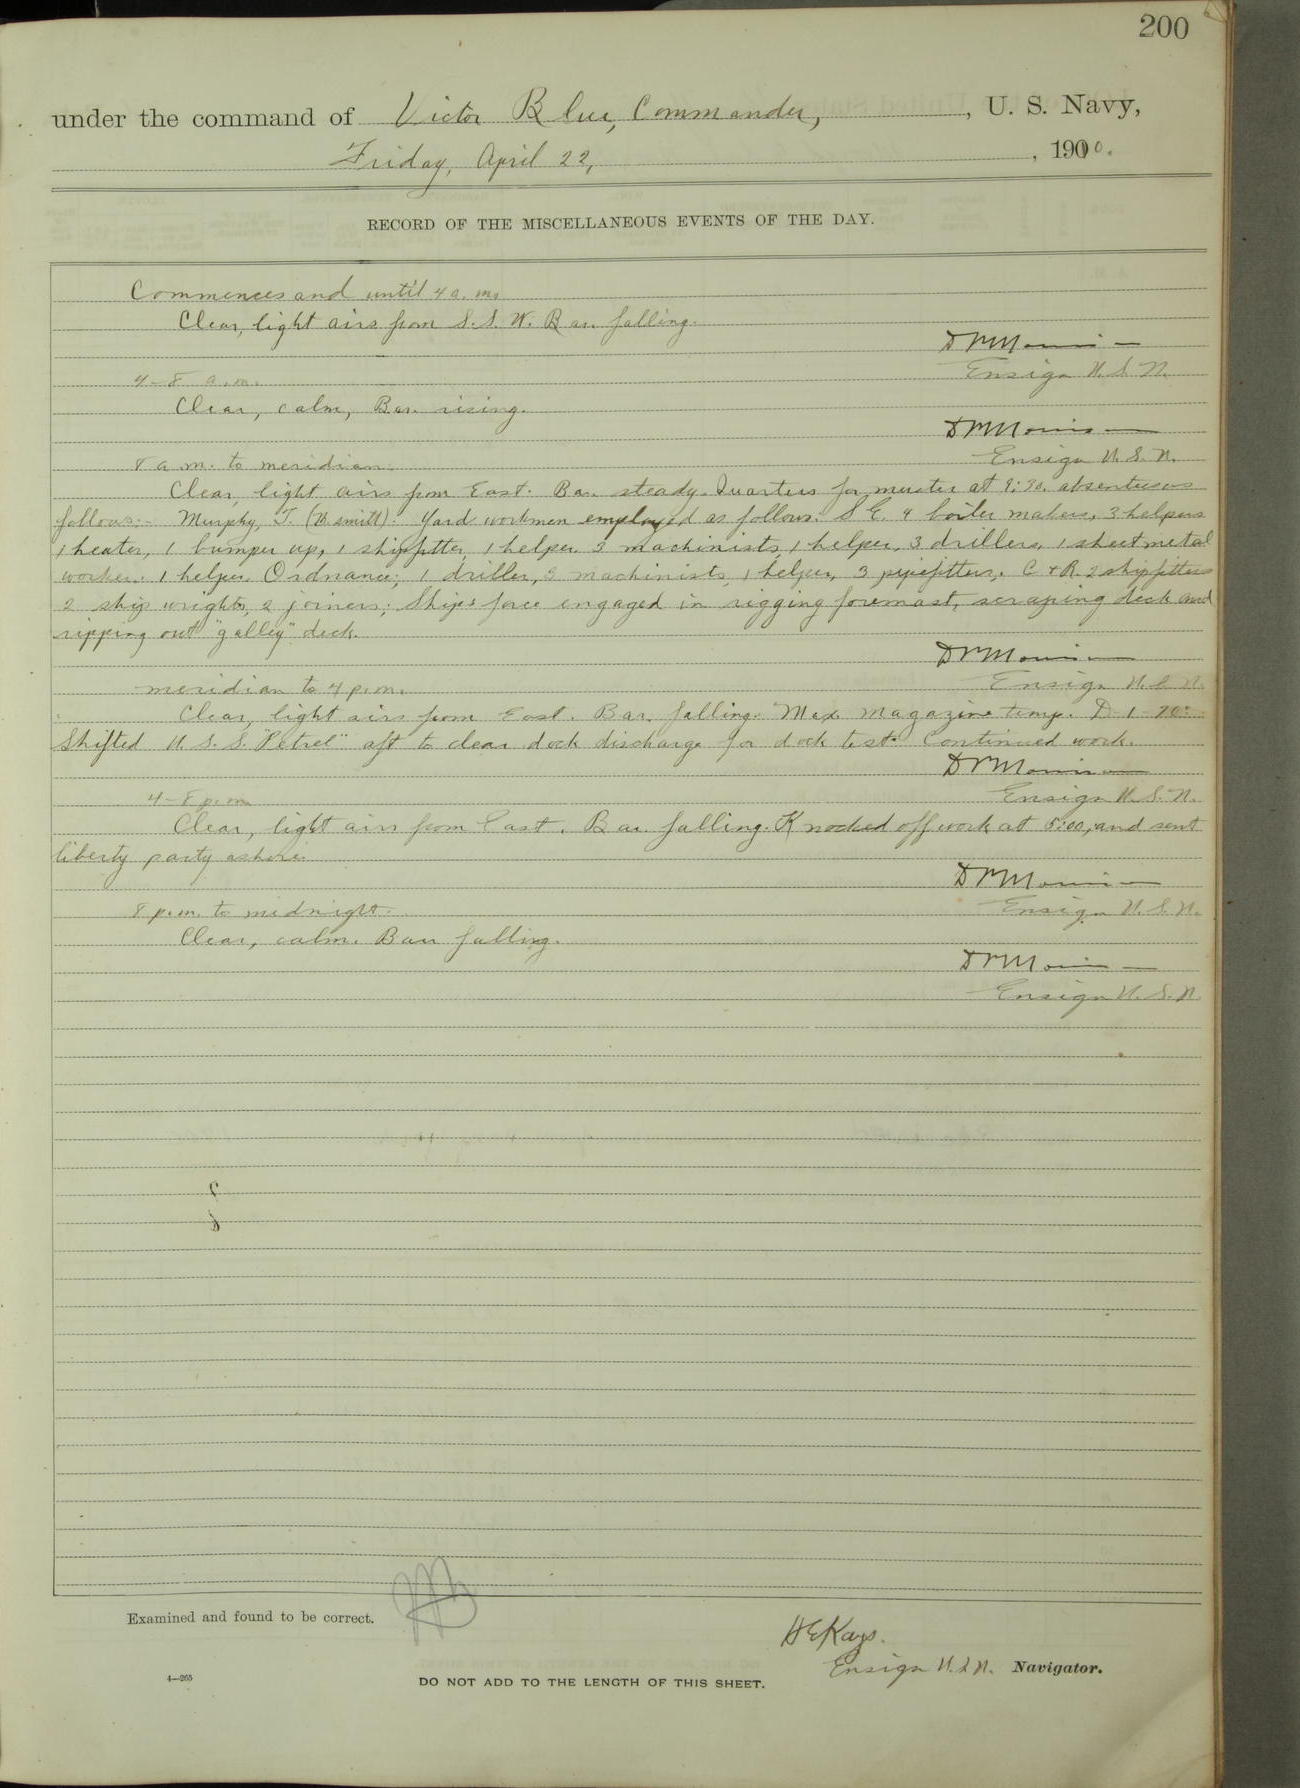 200
under the command of Victor Blue, Commander, , U. S. Navy,
Friday, April 22, , 1910.
RECORD OF THE MISCELLANEOUS EVENTS OF THE DAY.
Commences and until 4 a. m.
Clear, light airs from S.S.W. Bar. falling.
Ensign U.S.N.
4-8 a.m.
Clear, calm, Bar. rising.
Ensign U.S.N.
8 a.m. to meridian.
Clear, light airs from East. Bar. steady. Quarters for muster at 9:30. absentees as
follows:- Murphy, T. Yard workmen employed as follows. S.E. 4 boiler makers, 3 helpers
1 heater, 1 bumper up, 1 shipfitter, 1 helper. 3 machinists, 1 helper, 3 drillers, 1 sheet metal
worker. 1 helper. Ordnance; 1 driller, 3 machinists, 1 helper, 3 pipefitters. C & R. 2 shipfitters
2 ship wrights, 2 joiners; Ships force engaged in rigging foremast, scraping deck and
ripping out "galley" deck.
Ensign U.S.N.
meridian to 4 p.m.
Clear, light airs from East. Bar. falling. Max magazine temp. D-1-70°
Shifted U.S.S. "Petrel" aft to clear dock discharge for dock test. Continued work.
Ensign U.S.N.
4-8 p.m.
Clear, light airs from East. Bar falling. Knocked off work at 5:00, and sent
liberty party ashore.
Ensign U.S.N.
8 p.m. to midnight.
Clear, calm. Bar falling.
Ensign U.S.N.
Examined and found to be correct.
H E Kays.
Ensign U.S.N. Navigator.
4—265
DO NOT ADD TO THE LENGTH OF THIS SHEET.